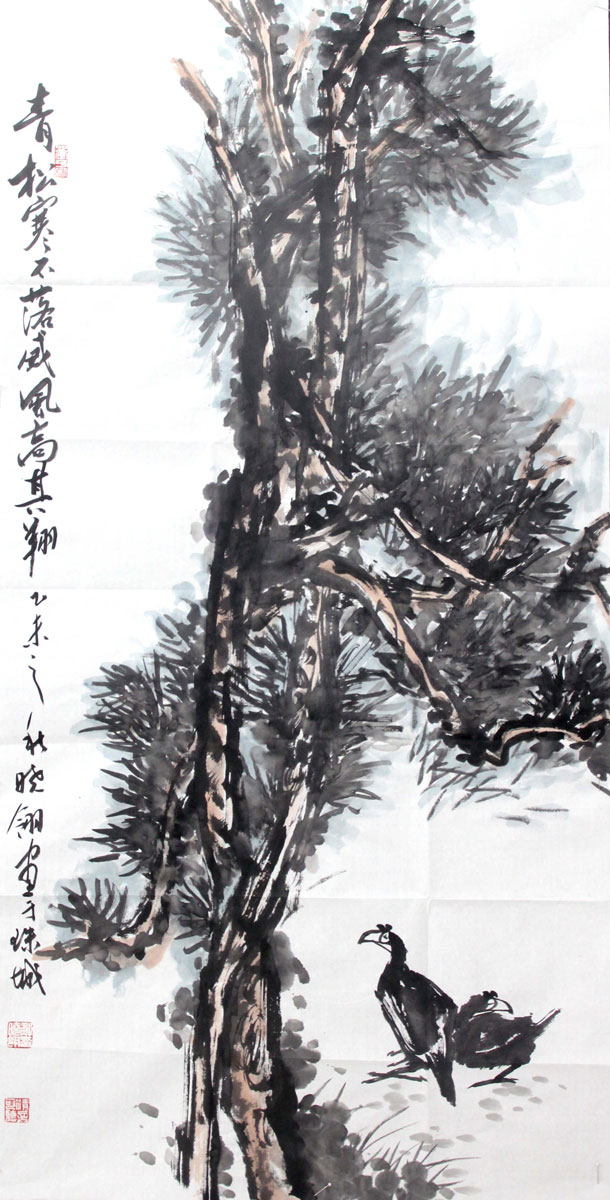 青松寒不落威风高其翔乙未之秋晓翎画于珠城